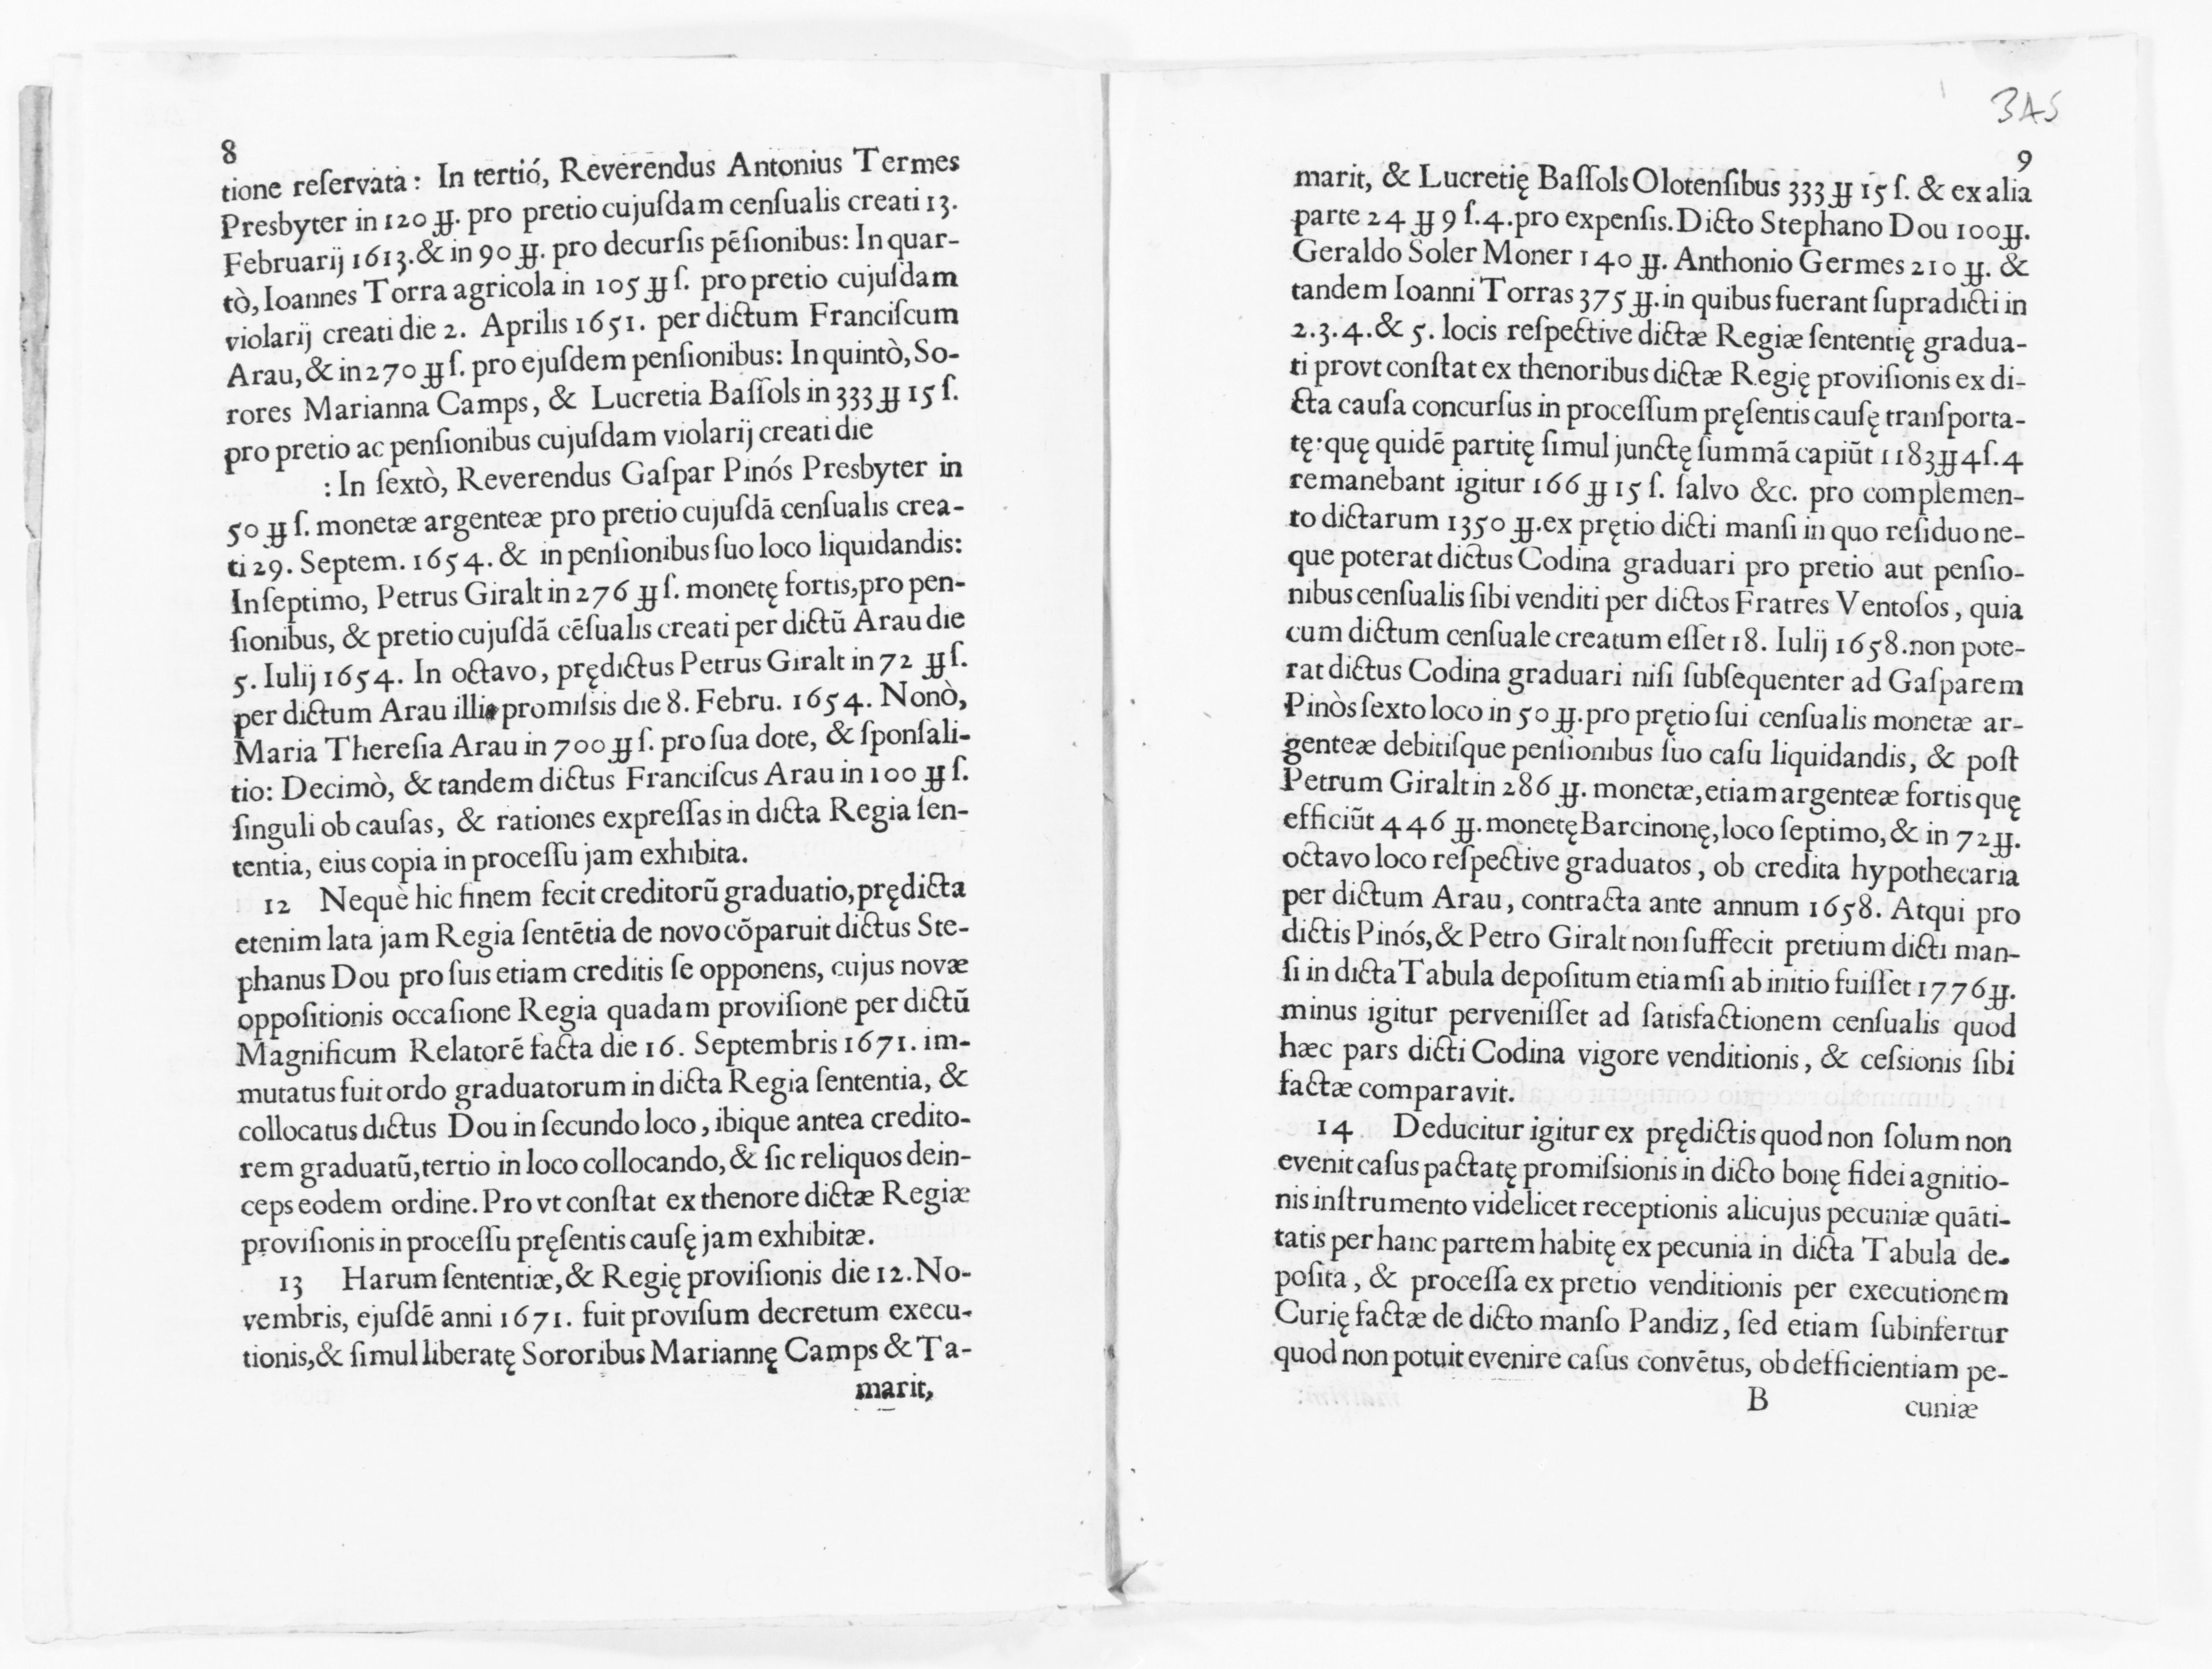 8
tione reſervata: In tertió, Reverendus Antonius Termes
Presbyter in 120 ℔. pro pretio cujuſdam cenſualis creati 13.
Februarij 1613. & in 90 ℔. pro decurſis pẽſionibus: In quar-
tò, Ioannes Torra agricola in 105 ℔ ſ. pro pretio cujuſdam
violarij creati die 2. Aprilis 1651. per dictum Franciſcum
Arau, & in 270 ℔ ſ. pro ejuſdem penſionibus: In quintò, So-
rores Marianna Camps, & Lucretia Baſſols in 333 ℔ 15 ſ.
pro pretio ac penſionibus cujuſdam violarij creati die
: In ſextò, Reverendus Gaſpar Pinós Presbyter in
50 ℔ ſ. monetæ argenteæ pro pretio cujuſdã cenſualis crea-
ti 29. Septem. 1654. & in penſionibus ſuo loco liquidandis:
In ſeptimo, Petrus Giralt in 276 ℔ ſ. monetę fortis, pro pen-
ſionibus, & pretio cujuſdã cẽſualis creati per dictũ Arau die
5. Iulij 1654. In octavo, prędictus Petrus Giralt in 72 ℔ ſ.
per dictum Arau illi promiſsis die 8. Febru. 1654. Nonò,
Maria Thereſia Arau in 700 ℔ ſ. pro ſua dote, & ſponſali-
tio: Decimò, & tandem dictus Franciſcus Arau in 100 ℔ ſ.
ſinguli ob cauſas, & rationes expreſſas in dicta Regia ſen-
tentia, eius copia in proceſſu jam exhibita.
12 Nequè hic finem fecit creditorũ graduatio, prędicta
etenim lata jam Regia ſentẽtia de novo cõparuit dictus Ste-
phanus Dou pro ſuis etiam creditis ſe opponens, cujus novæ
oppoſitionis occaſione Regia quadam proviſione per dictũ
Magnificum Relatorẽ facta die 16. Septembris 1671. im-
mutatus fuit ordo graduatorum in dicta Regia ſententia, &
collocatus dictus Dou in ſecundo loco, ibique antea credito-
rem graduatũ, tertio in loco collocando, & ſic reliquos dein-
ceps eodem ordine. Pro vt conſtat ex thenore dictæ Regiæ
proviſionis in proceſſu pręſentis cauſę jam exhibitæ.
13 Harum ſententiæ, & Regię proviſionis die 12. No-
vembris, ejuſdẽ anni 1671. fuit proviſum decretum execu-
tionis, & ſimul liberatę Sororibus Mariannę Camps & Ta-
marit,
3AS
9
marit, & Lucretię Baſſols Olotenſibus 333 ℔ 15 ſ. & ex alia
parte 24 ℔ 9 ſ. 4. pro expenſis. Dicto Stephano Dou 100 ℔.
Geraldo Soler Moner 140 ℔. Anthonio Germes 210 ℔. &
tandem Ioanni Torras 375 ℔. in quibus fuerant ſupradicti in
2. 3. 4. & 5. locis reſpective dictæ Regiæ ſententię gradua-
ti provt conſtat ex thenoribus dictæ Regię proviſionis ex di-
cta cauſa concurſus in proceſſum pręſentis cauſę tranſporta-
tę: quę quidẽ partitę ſimul junctę ſummã capiũt 1183 ℔ 4 ſ. 4
remanebant igitur 166 ℔ 15 ſ. ſalvo &c. pro complemen-
to dictarum 1350 ℔. ex prętio dicti manſi in quo reſiduo ne-
que poterat dictus Codina graduari pro pretio aut penſio-
nibus cenſualis ſibi venditi per dictos Fratres Ventoſos, quia
cum dictum cenſuale creatum eſſet 18. Iulij 1658. non pote-
rat dictus Codina graduari niſi ſubſequenter ad Gaſparem
Pinòs ſexto loco in 50 ℔. pro prętio ſui cenſualis monetæ ar-
genteæ debitiſque penſionibus ſuo caſu liquidandis, & poſt
Petrum Giralt in 286 ℔. monetæ, etiam argenteæ fortis quę
efficiũt 446 ℔. monetę Barcinonę, loco ſeptimo, & in 72 ℔.
octavo loco reſpective graduatos, ob credita hypothecaria
per dictum Arau, contracta ante annum 1658. Atqui pro
dictis Pinós, & Petro Giralt non ſuffecit pretium dicti man-
ſi in dicta Tabula depoſitum etiamſi ab initio fuiſſet 1776 ℔.
minus igitur perveniſſet ad ſatisfactionem cenſualis quod
hæc pars dicti Codina vigore venditionis, & ceſsionis ſibi
factæ comparavit.
14 Deducitur igitur ex prędictis quod non ſolum non
evenit caſus pactatę promiſsionis in dicto bonę fidei agnitio-
nis inſtrumento videlicet receptionis alicujus pecuniæ quãti-
tatis per hanc partem habitę ex pecunia in dicta Tabula de-
poſita, & proceſſa ex pretio venditionis per executionem
Curię factæ de dicto manſo Pandiz, ſed etiam ſubinfertur
quod non potuit evenire caſus convẽtus, ob defficientiam pe-
B cuniæ